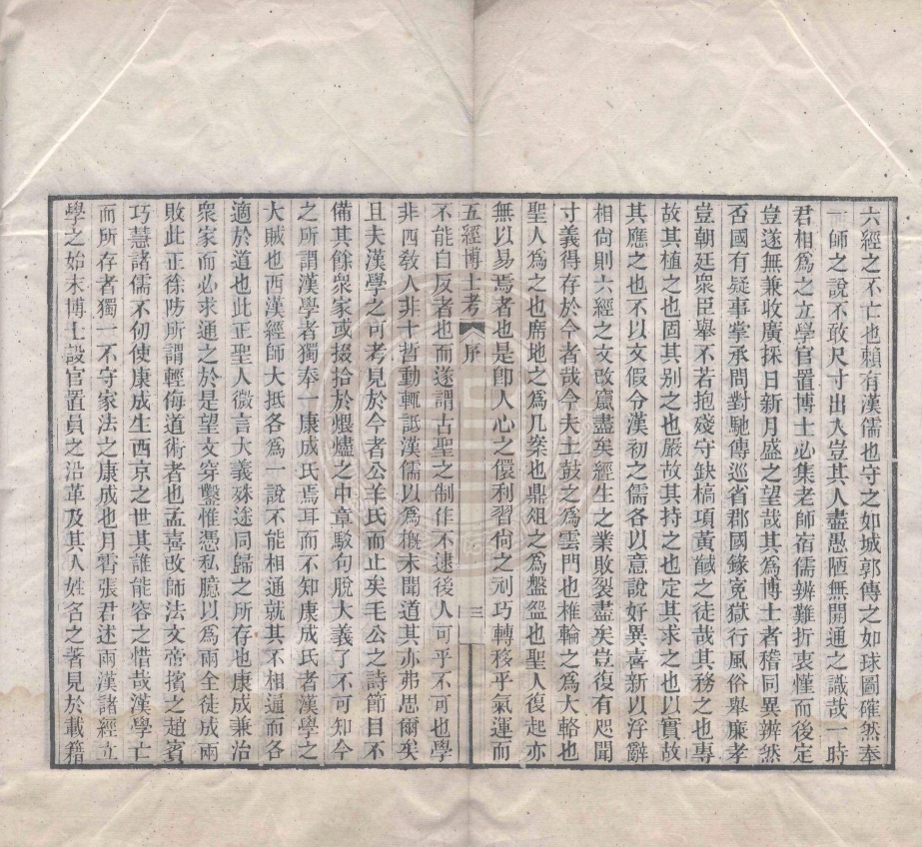 六經之不亡也賴有漢儒也守之如城郭傳之如球圖確然奉
一師之說不敢尺寸出入豈其人盡愚陋無開通之識哉一時
君相爲之立學官置博士必集老師宿儒辨難折衷僅而後定
豈遂無兼收廣採日新月盛之望哉其爲博士者稽同異辨然
否國有疑事掌承問對馳傳巡省郡國錄寃獄行風俗舉廉孝
豈朝廷衆臣舉不若抱殘守缺槁項黃馘之徒哉其務之也專
故其植之也固其別之也嚴故其持之也定其求之也以實故
其應之也不以文假令漢初之儒各以意說好異喜新以浮辭
相尙則六經之文改竄盡矣經生之業敗裂盡矣豈復有咫聞
寸義得存於今者哉今夫土鼓之爲雲門也椎輪之爲大輅也
聖人爲之也席地之爲几案也鼎俎之爲盤盌也聖人復起亦
無以易焉者也是卽人心之儇利習尙之剜巧轉移乎氣運而
五經博士考 序 三
不能自反者也而遂謂古聖之制作不逮後人可乎不可也學
非四敎人非十哲動輒詆漢儒以爲槪未聞道其亦弗思爾矣
且夫漢學之可考見於今者公羊氏而止矣毛公之詩節目不
備其餘衆家或掇拾於煨燼之中章駁句脫大義了不可知今
之所謂漢學者獨奉一康成氏焉耳而不知康成氏者漢學之
大賊也西漢經師大抵各爲一說不能相通就其不相通而各
適於道也此正聖人微言大義殊途同歸之所存也康成兼治
衆家而必求通之於是望文穿鑿惟憑私臆以爲兩全徒成兩
敗此正徐防所謂輕侮道術者也孟喜改師法文帝擯之趙賓
巧慧諸儒不仞使康成生西京之世其誰能容之惜哉漢學亡
而所存者獨一不守家法之康成也月霄張君述兩漢諸經立
學之始末博士設官置員之沿革及其人姓名之著見於載籍